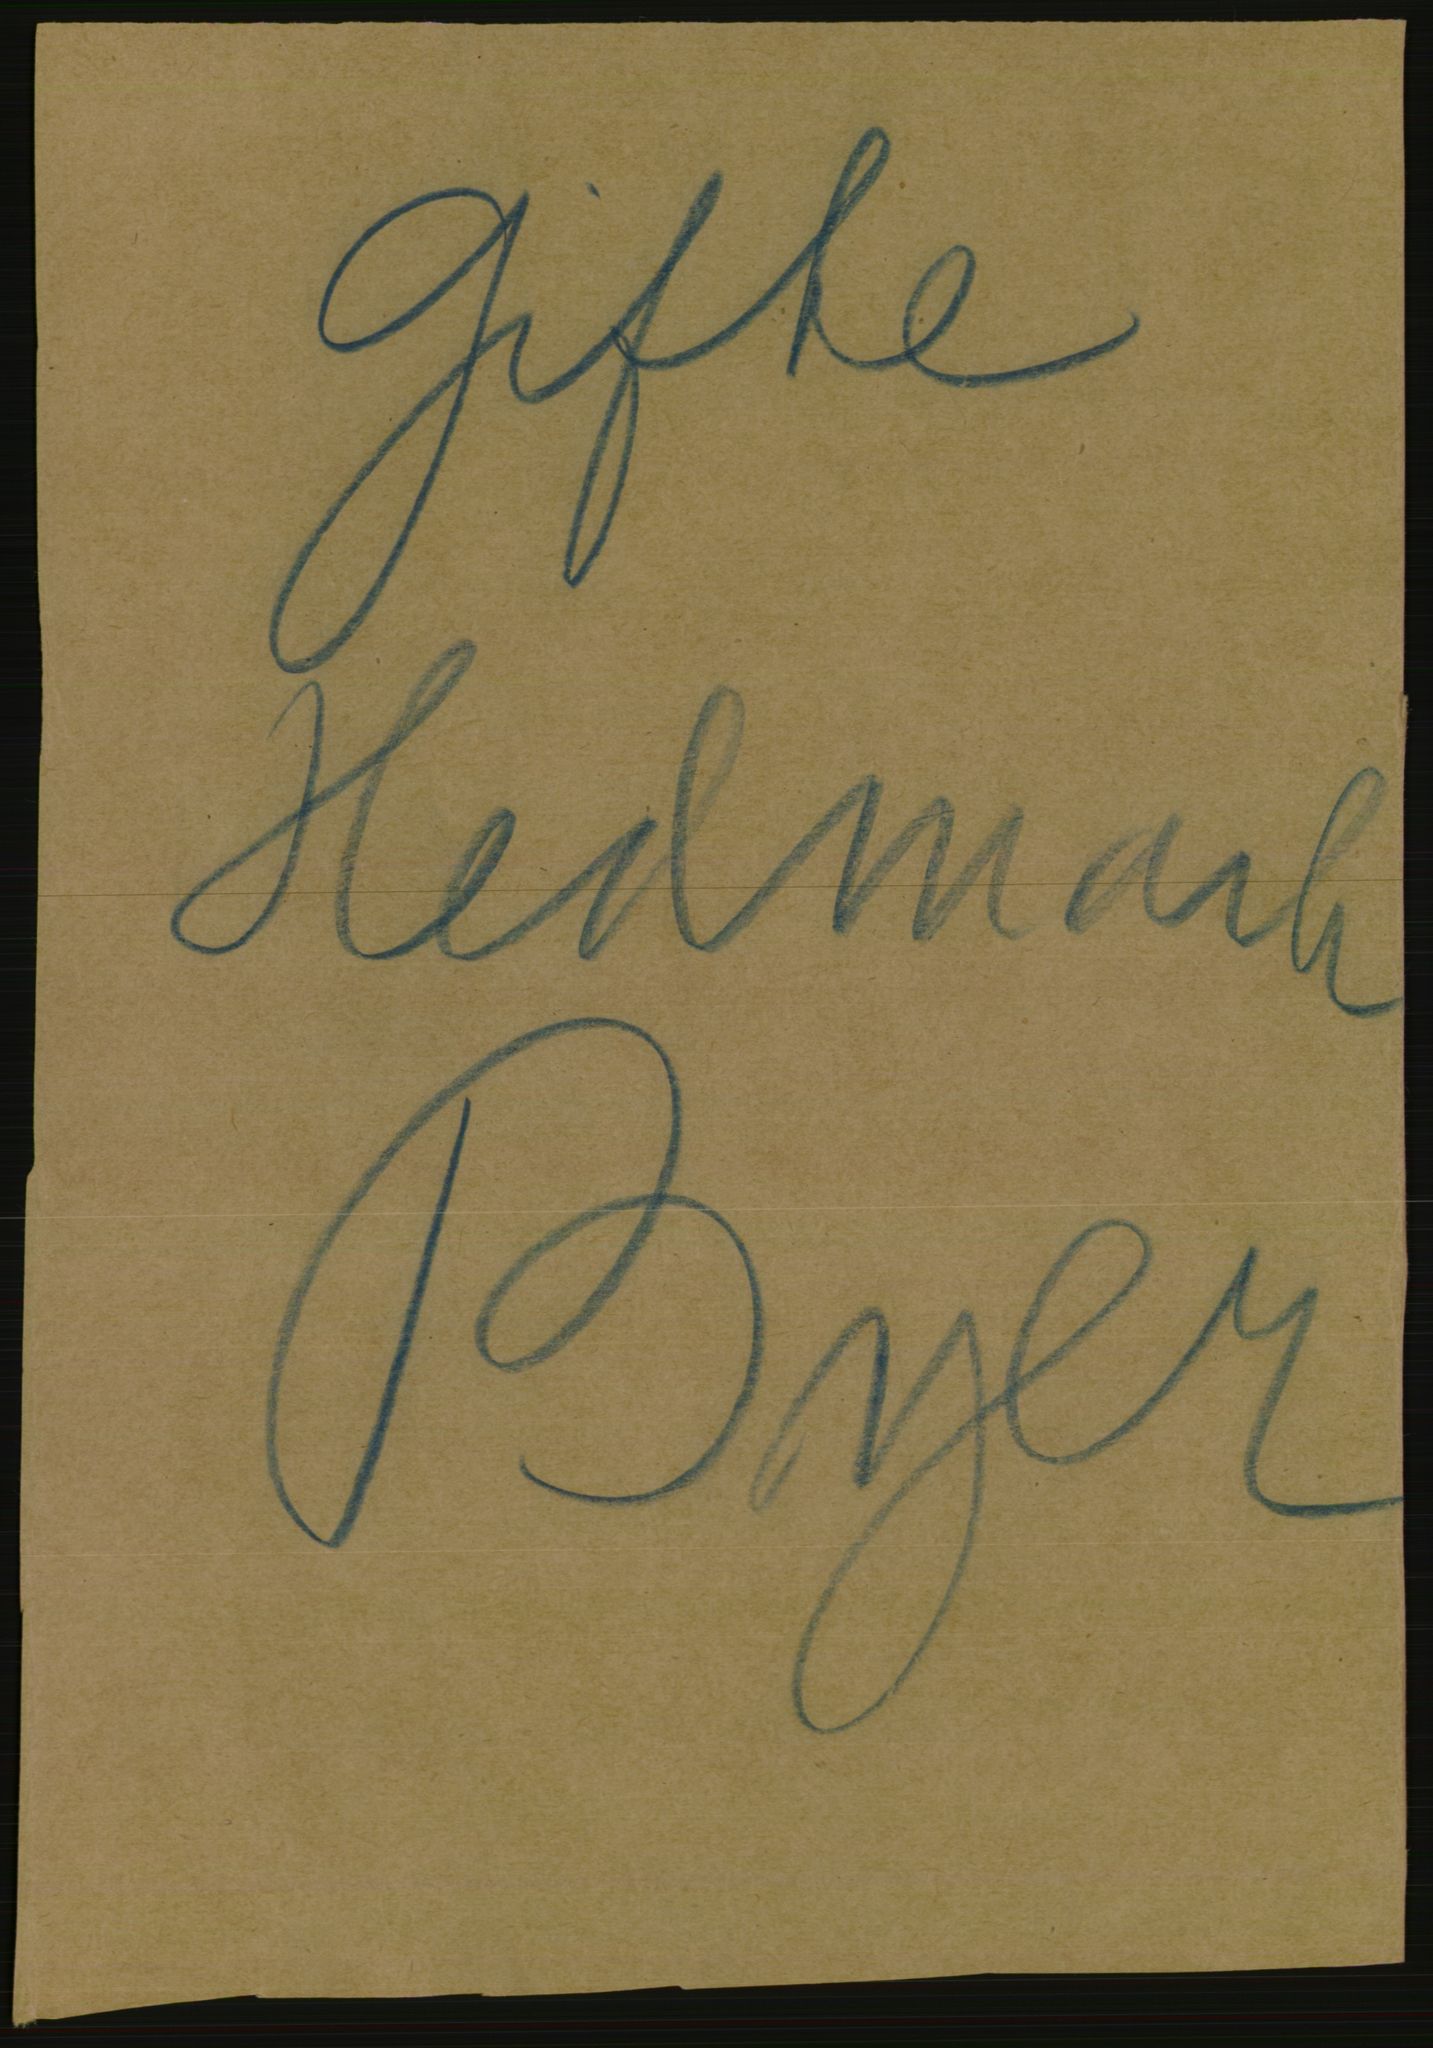 gifte
Hedmark
Byer